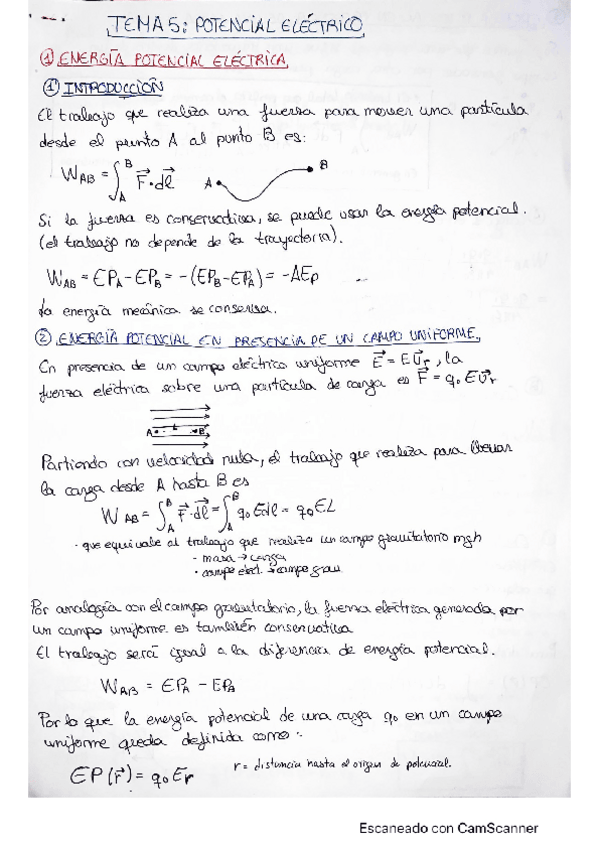 TEMA 5: POTENCIAL ELÉCTRICO
① ENERGÍA POTENCIAL ELÉCTRICA
① INTRODUCCIÓN
El trabajo que realiza una fuerza para mover una partícula
desde el punto A al punto B es:
W_AB = ∫_A^B F⃗·dl⃗ A B
Si la fuerza es conservativa, se puede usar la energía potencial.
(el trabajo no depende de la trayectoria).
W_AB = EP_A - EP_B = -(EP_B - EP_A) = -ΔEp
La energía mecánica se conserva.
② ENERGÍA POTENCIAL EN PRESENCIA DE UN CAMPO UNIFORME.
En presencia de un campo eléctrico uniforme E⃗ = E u⃗r, la
fuerza eléctrica sobre una partícula de carga es F⃗ = q₀ E u⃗r
A B
Partiendo con velocidad nula, el trabajo que realiza para llevar
la carga desde A hasta B es
W_AB = ∫_A^B F⃗·dl⃗ = ∫_A^B q₀ E dl = q₀ E L
· que equivale al trabajo que realiza un campo gravitatorio mgh
· masa → carga
· campo elect. → campo grav
Por analogía con el campo gravitatorio, la fuerza eléctrica generada por
un campo uniforme es también conservativa
El trabajo será igual a la diferencia de energía potencial.
W_AB = EP_A - EP_B
Por lo que la energía potencial de una carga q₀ en un campo
uniforme queda definida como:
EP(r⃗) = q₀ E r r = distancia hasta el origen de potencial.
Escaneado con CamScanner